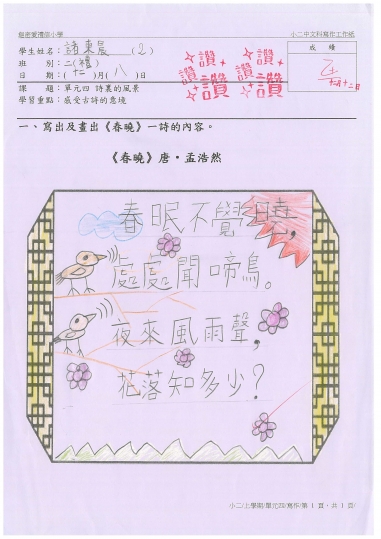 學生姓名：諸東晨 (2)
小二中文科寫作工作紙
成績
班　別：二(禮)
日　期：(十二)月(八)日
課　題：單元四 詩裏的風景
學習重點：感受古詩的意境
讚 讚 讚
讚 讚 讚
一、寫出及畫出《春曉》一詩的內容。
《春曉》唐．孟浩然
春眠不覺曉，
處處聞啼鳥。
夜來風雨聲，
花落知多少？
小二/上學期/單元四/寫作/第 1 頁，共 1 頁/